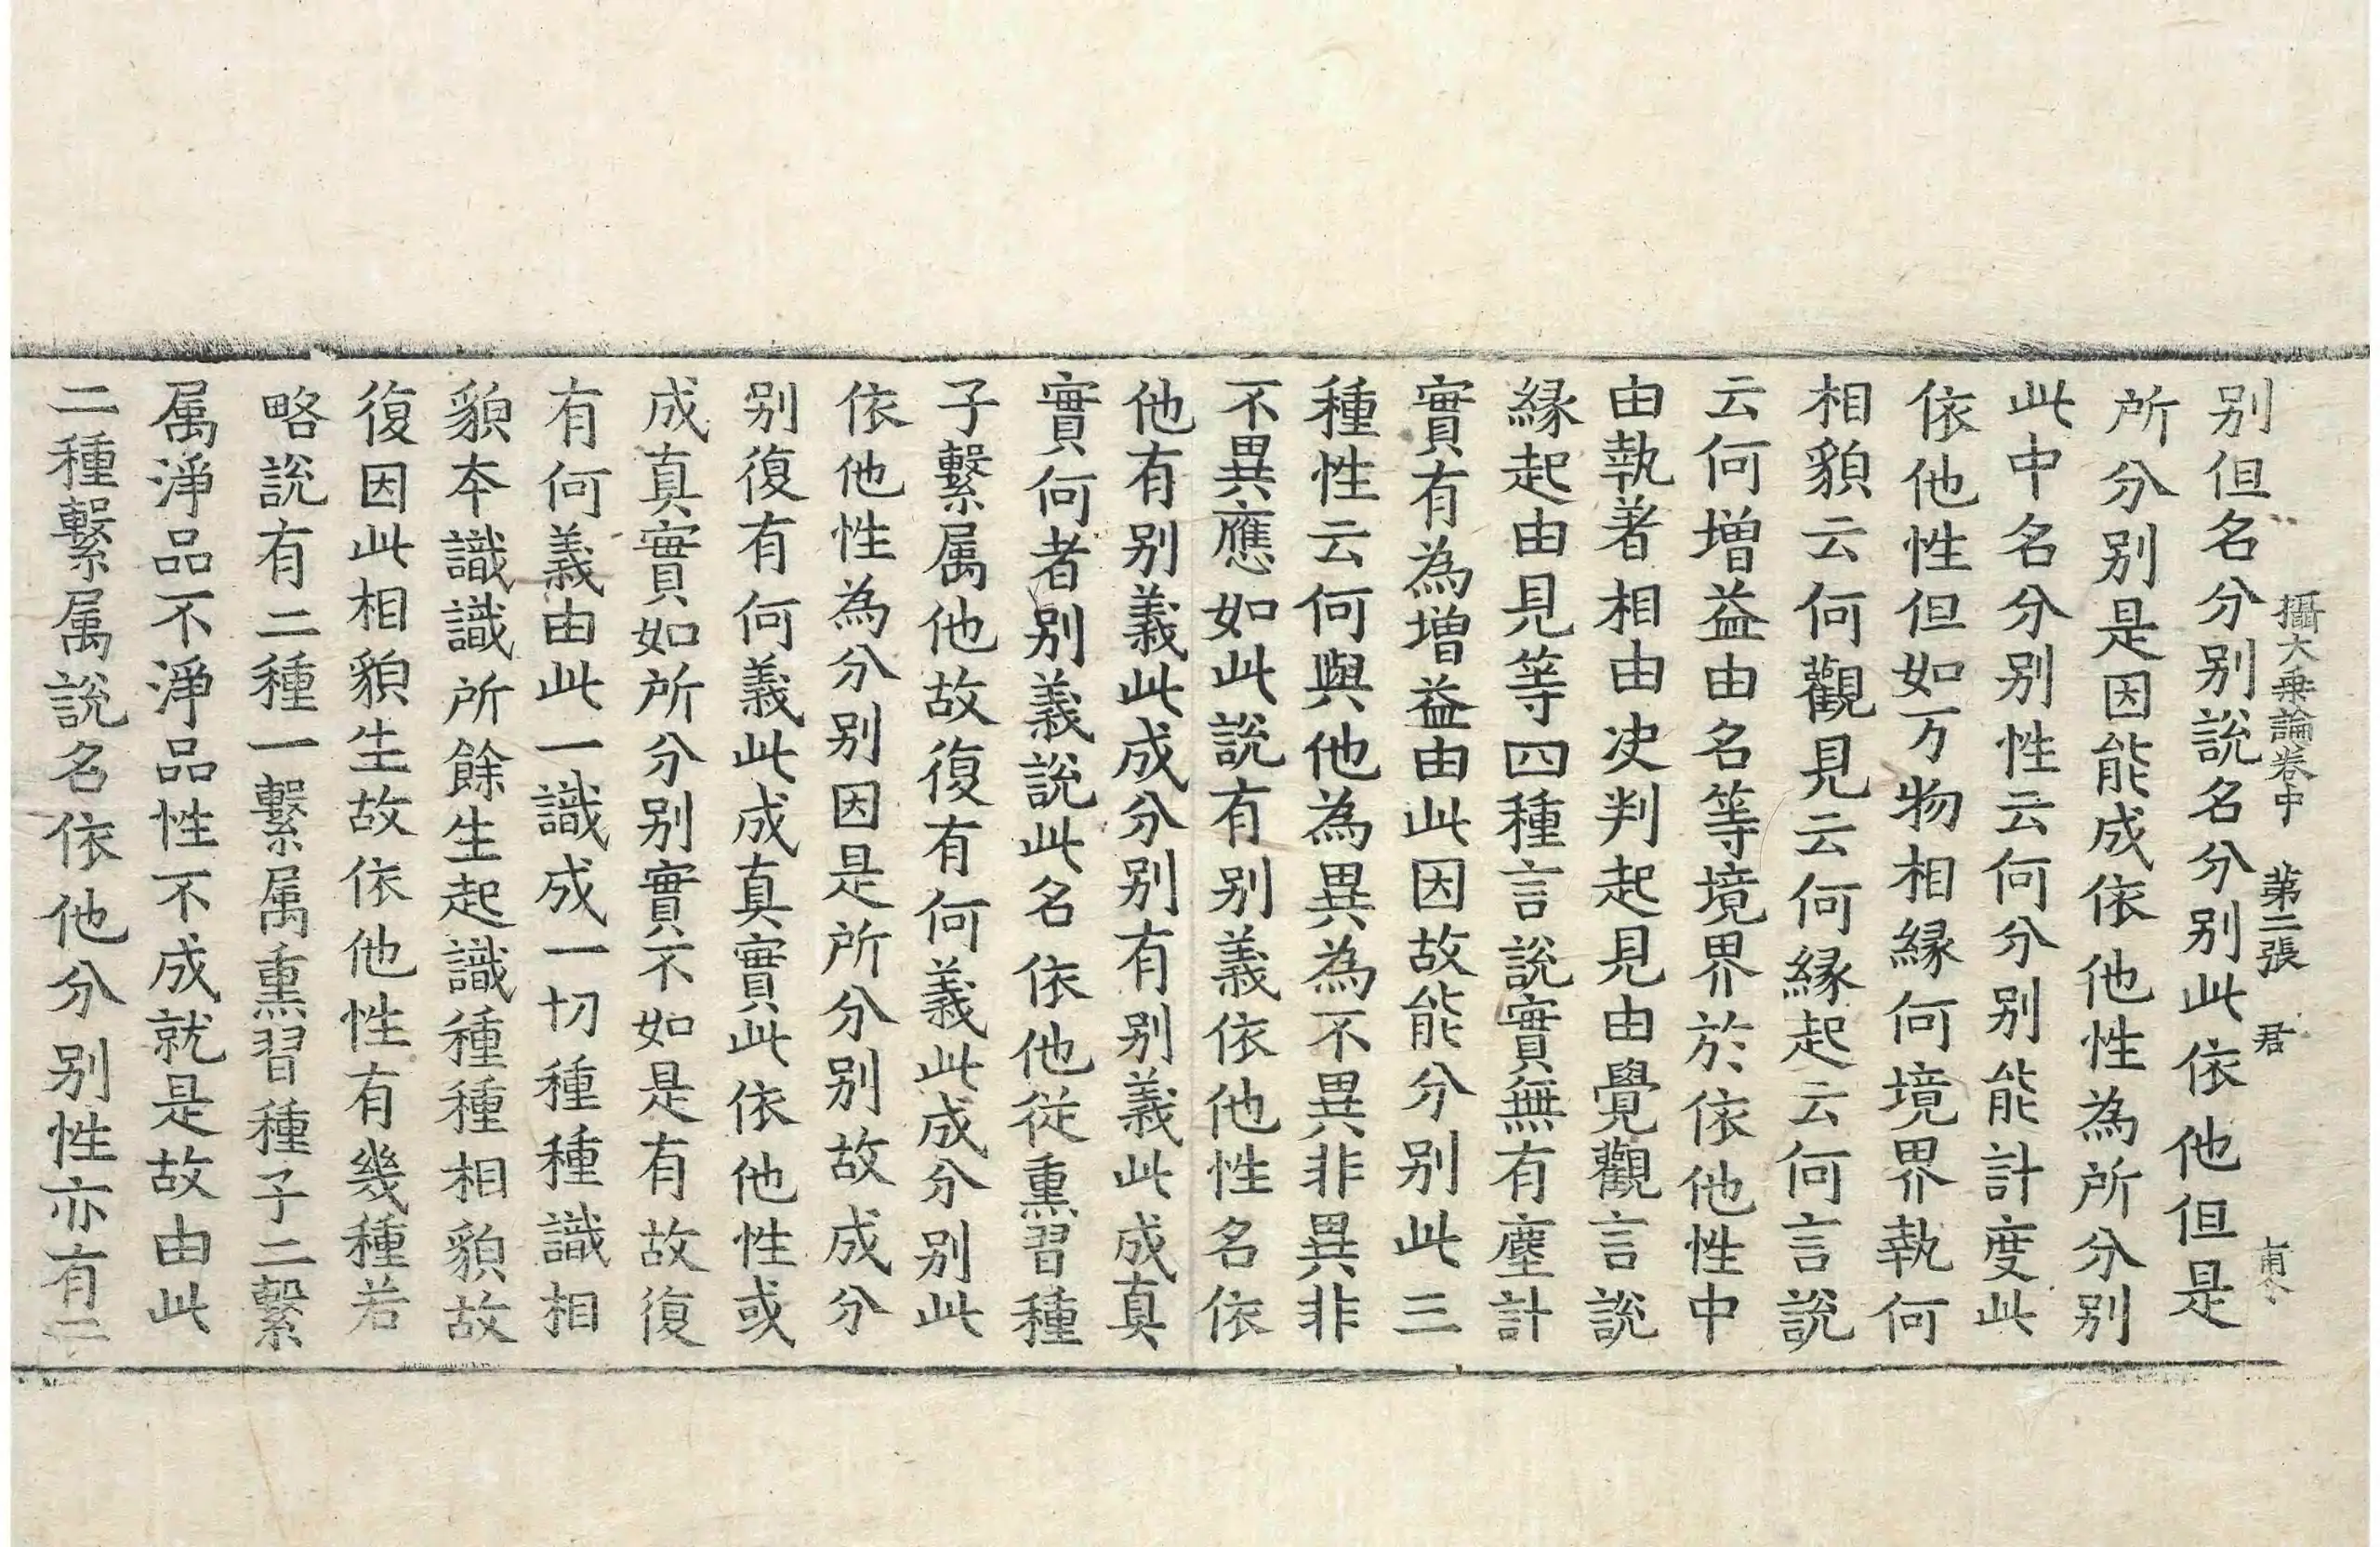 攝大乗論卷中　第二張　君
别但名分别說名分别此依他但是
所分别是因能成依他性為所分别
此中名分别性云何分别能計度此
依他性但如万物相縁何境界執何
相貌云何觀見云何縁起云何言說
云何增益由名等境界於依他性中
由執著相由决判起見由覺觀言說
縁起由見等四種言說實無有塵計
實有為增益由此因故能分别此三
種性云何與他為異為不異非異非
不異應如此說有别義依他性名依
他有别義此成分别有别義此成真
實何者别義說此名依他從熏習種
子繫属他故復有何義此成分别此
依他性為分别因是所分别故成分
别復有何義此成真實此依他性或
成真實如所分别實不如是有故復
有何義由此一識成一切種種識相
貌本識識所餘生起識種種相貌故
復因此相貌生故依他性有幾種若
略說有二種一繫属熏習種子二繫
属淨品不淨品性不成就是故由此
二種繫属說名依他分别性亦有二